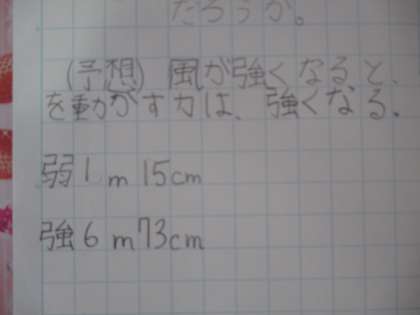 だろうか。
(予想) 風が強くなると、
を動かす力は、強くなる。
弱1m15cm
強6m73cm